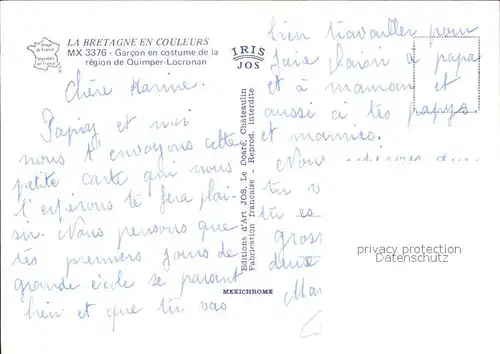 LA BRETAGNE EN COULEURS
MX 3376 - Garçon en costume de la
région de Quimper-Locronan
IRIS
JOS
Chère Karine.
et moi
nous t'envoyons cette
petite carte qui nous
l'espérons te fera plai-
sir. Nous pensons que
tes premiers jours de
grande école se passent
bien et que tu vas
Editions d'Art JOS, Le Doaré, Châteaulin
Fabrication française - Reprod. interdite
MEXICHROME
bien travailler pour
faire plaisir à papa
et à maman et
aussi à tes papys
et mamies.
Nous que
tu
tu es
gros
privacy protection
Datenschutz